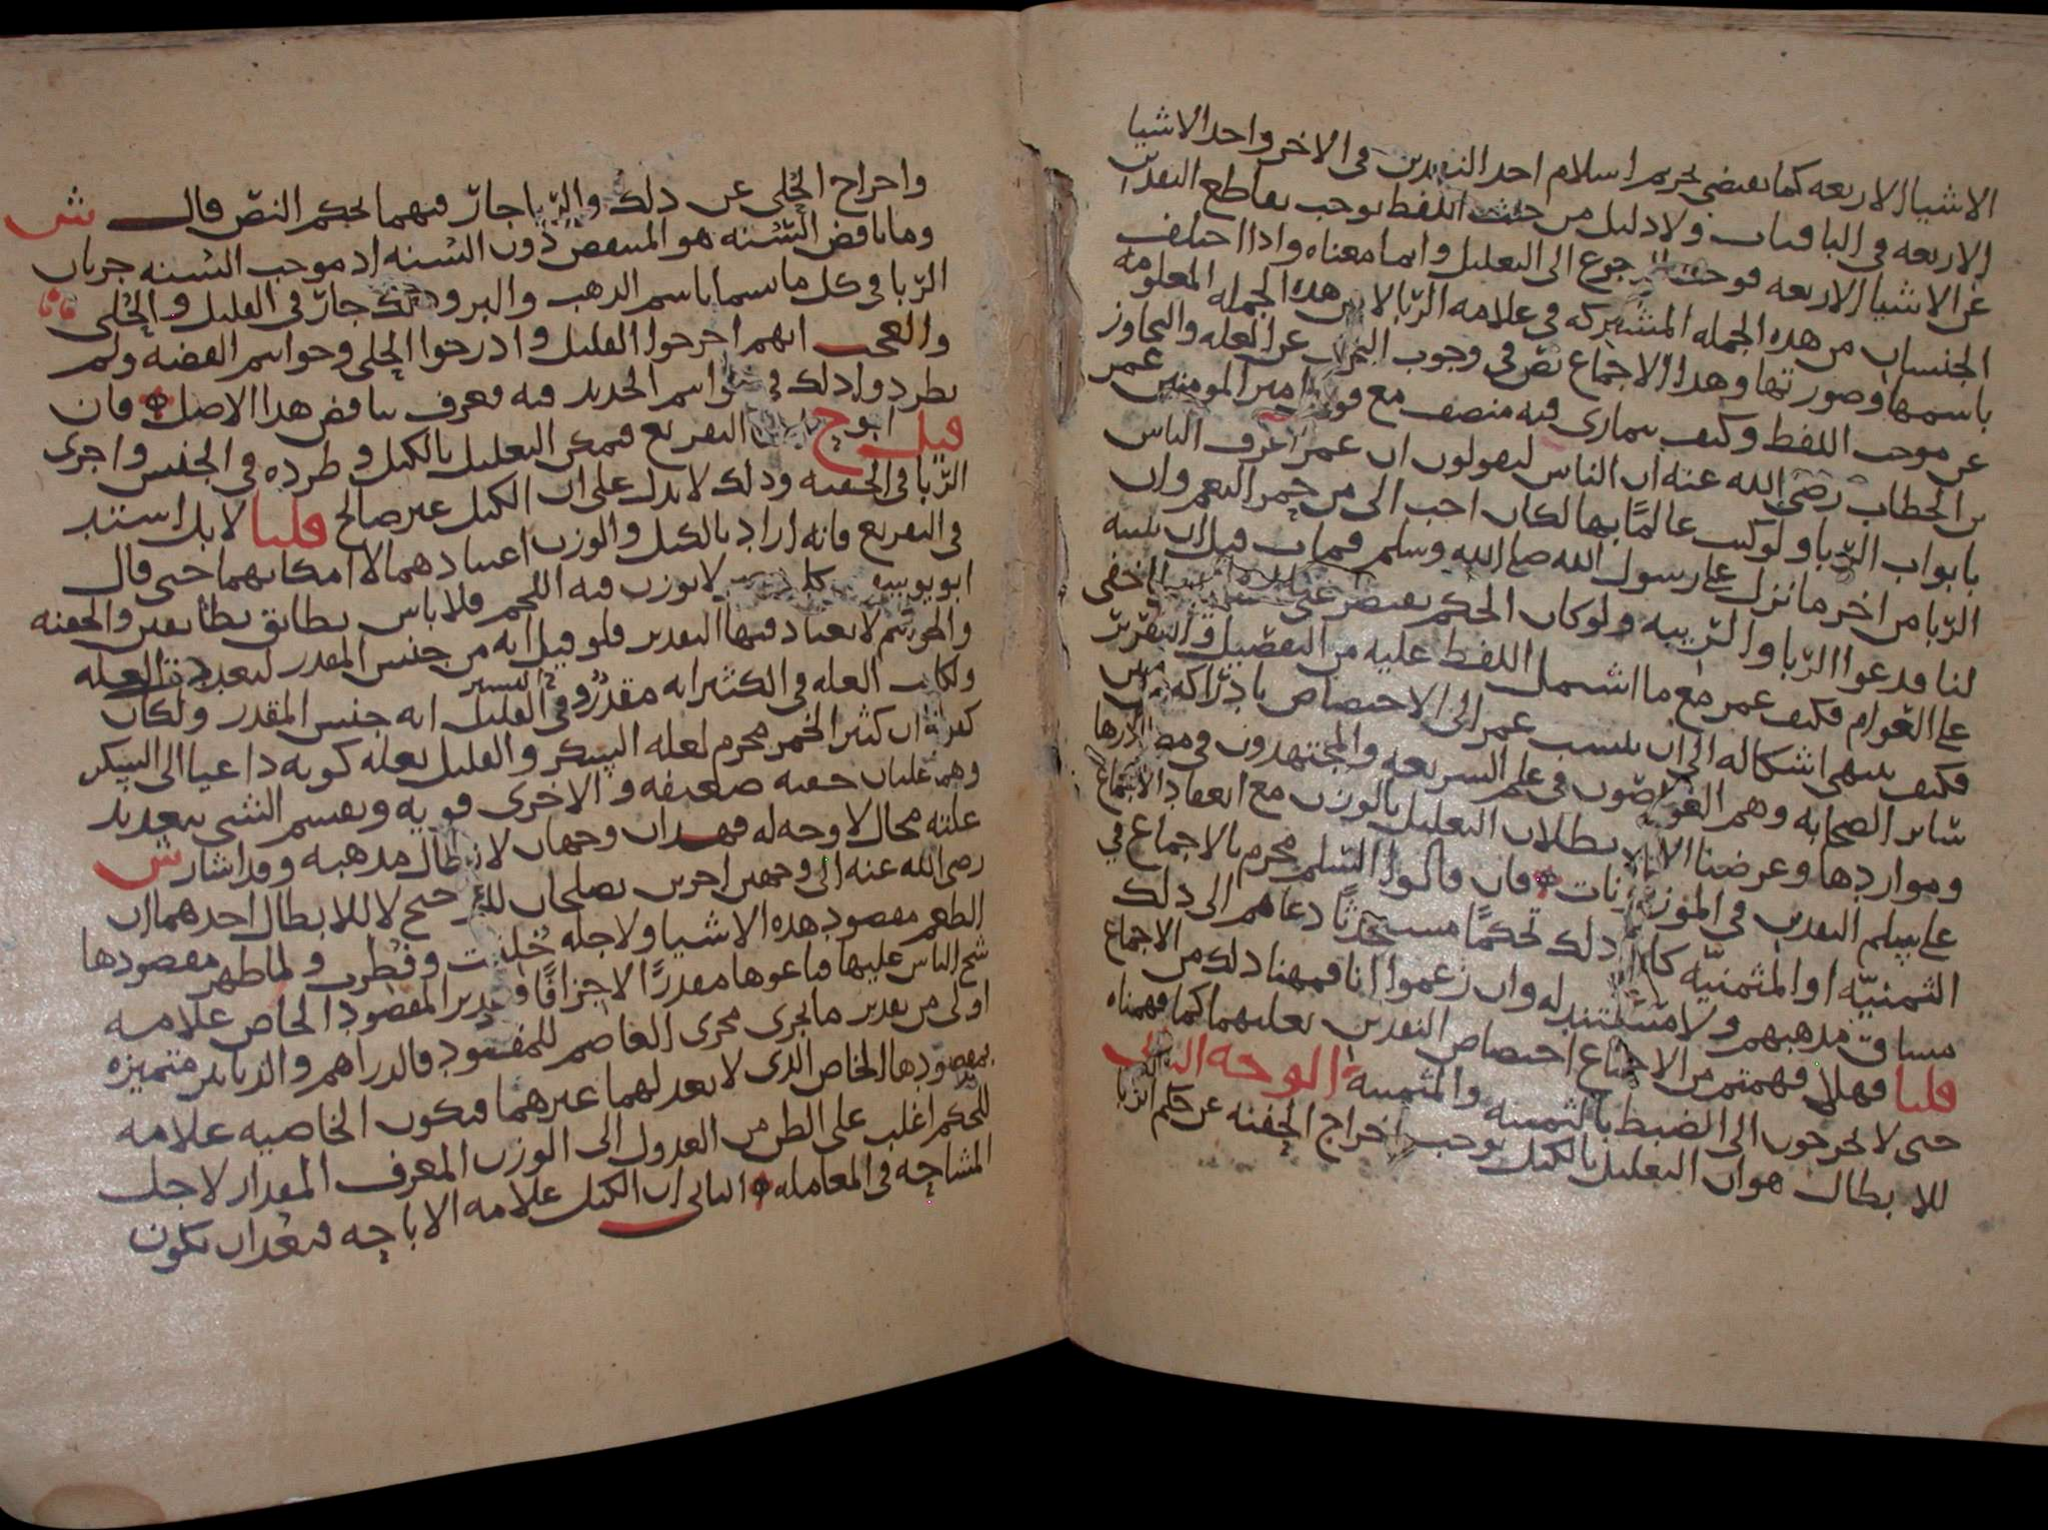 الاشيا الاربعه كما يقتضي تحريم اسلام احد النقدين في الاخر واحد الاشيا
الاربعه في الباقيات ولا دليل من حيث اللفظ يوجب تقاطع النقدين
عن الاشيا الاربعه فوجب الرجوع الى التعليل وانما معناه واذا اختلف
الجنسان من هذه الجمله المشتركه في علامه الربا لا من هذه الجمله المعلومه
باسمها وصورتها وهذا الاجماع نص في وجوب البحث عن العله والتجاوز
عن موجب اللفظ وكيف يتمارى فيه منصف مع قول امير المومنين عمر
بن الخطاب رضي الله عنه ان الناس ليقولون ان عمر اعرف الناس
بابواب الربا ولو كنت عالمًا بها لكان احب الى من حمر النعم وان
الربا من اخر ما نزل على رسول الله صلع الله وسلم فمات قبل ان يبينه
لنا فدعوا الربا والريبه ولو كان الحكم يقتصر على اخفى
على العوام فكيف عمر مع ما اشتمل اللفظ عليه من التفصيل والتقرير
فكيف ينتهي اشكاله الى ان ينسب عمر الى الاختصاص بادراكه من بين
ساير الصحابه وهم الغواصون في علم الشريعه والمجتهدون في مصادرها
ومواردها وغرضنا الان بطلان التعليل بالوزن مع انعقاد الاجماع
على تسليم النقدين في الموزونات فان قالوا السلم محرم بالاجماع في
الثمنيّه او المثمنيّه كان ذلك تحكمًا مستحدثًا دعاهم الى ذلك
مساق مذهبهم ولا مستند له وان زعموا انا فهمنا ذلك من الاجماع
قلنا فهلا فهمتم من الاجماع اختصاص النقدين بعلتهما كما فهمناه
حتى لا تحوجون الى الضبط بالثمنيه والمثمنيه الوجه الثاني
للابطال هو ان التعليل بالكيل يوجب اخراج الحفنه عن حكم الربا
واخراج الحلي عن ذلك والربا جار فيهما بحكم النص قال ش
وما ناقض السنه هو المنتقض دون السنه اذ موجب السنه جريان
الربا في كل ما يسما باسم الذهب والبر وذلك جار في القليل والحلي
والعجب انهم اخرجوا القليل وادرجوا الحلي وحواسم الفضه ولم
يطردوا ذلك في اسم الحديد فيه فعرف تناقض هذا الاصل فان
قيل ابو ح التفريع فيمكن التعليل بالكيل وطرده في الجنس واجرى
الربا في الحفنه وذلك لا يدل على ان الكيل غير صالح قلنا لا بل استند
في التفريع فانه اراد بالكيل والوزن اعتيادهما لا امكانهما حتى قال
ابو يوسف لا يوزن فيه اللحم فلا باس بطابق بطابقين والحفنه
والجواهر لا يعتاد فيها التقدير فلو قيل انه من جنس المقدر لتعددت العله
ولكان العله في الكثير انه مقدر وفي القليل انه جنس المقدر ولكان
كقولنا ان كثير الخمر محرم لعله السكر والقليل بعله كونه داعيا الى السكر
وهما علتان خفيه ضعيفه والاخرى قويه وتقسيم الشي بتعديد
علته محال لا وجه له فهذان وجهان لابطال مذهبه وقد اشار ش
رضي الله عنه الى وجهين اخرين يصلحان للترجيح لا للابطال احدهما ان
الطعم مقصود هذه الاشيا ولاجله خلقت وفطرت ولما ظهر مقصودها
شح الناس عليها فباعوها مقدرًا لا جزافًا وتقدير المقصود الخاص علامه
اولى من تقدير ما يجري مجرى العاصم للمقصود فالدراهم والدنانير متميزه
بمقصودها الخاص الذي لا يعد لهما غيرهما فتكون الخاصيه علامه
للحكم اغلب على الظن من العدول الى الوزن المعرف المقدار لاجل
المشاحه في المعامله الثاني ان الكيل علامه الاباحه فبعد ان يكون